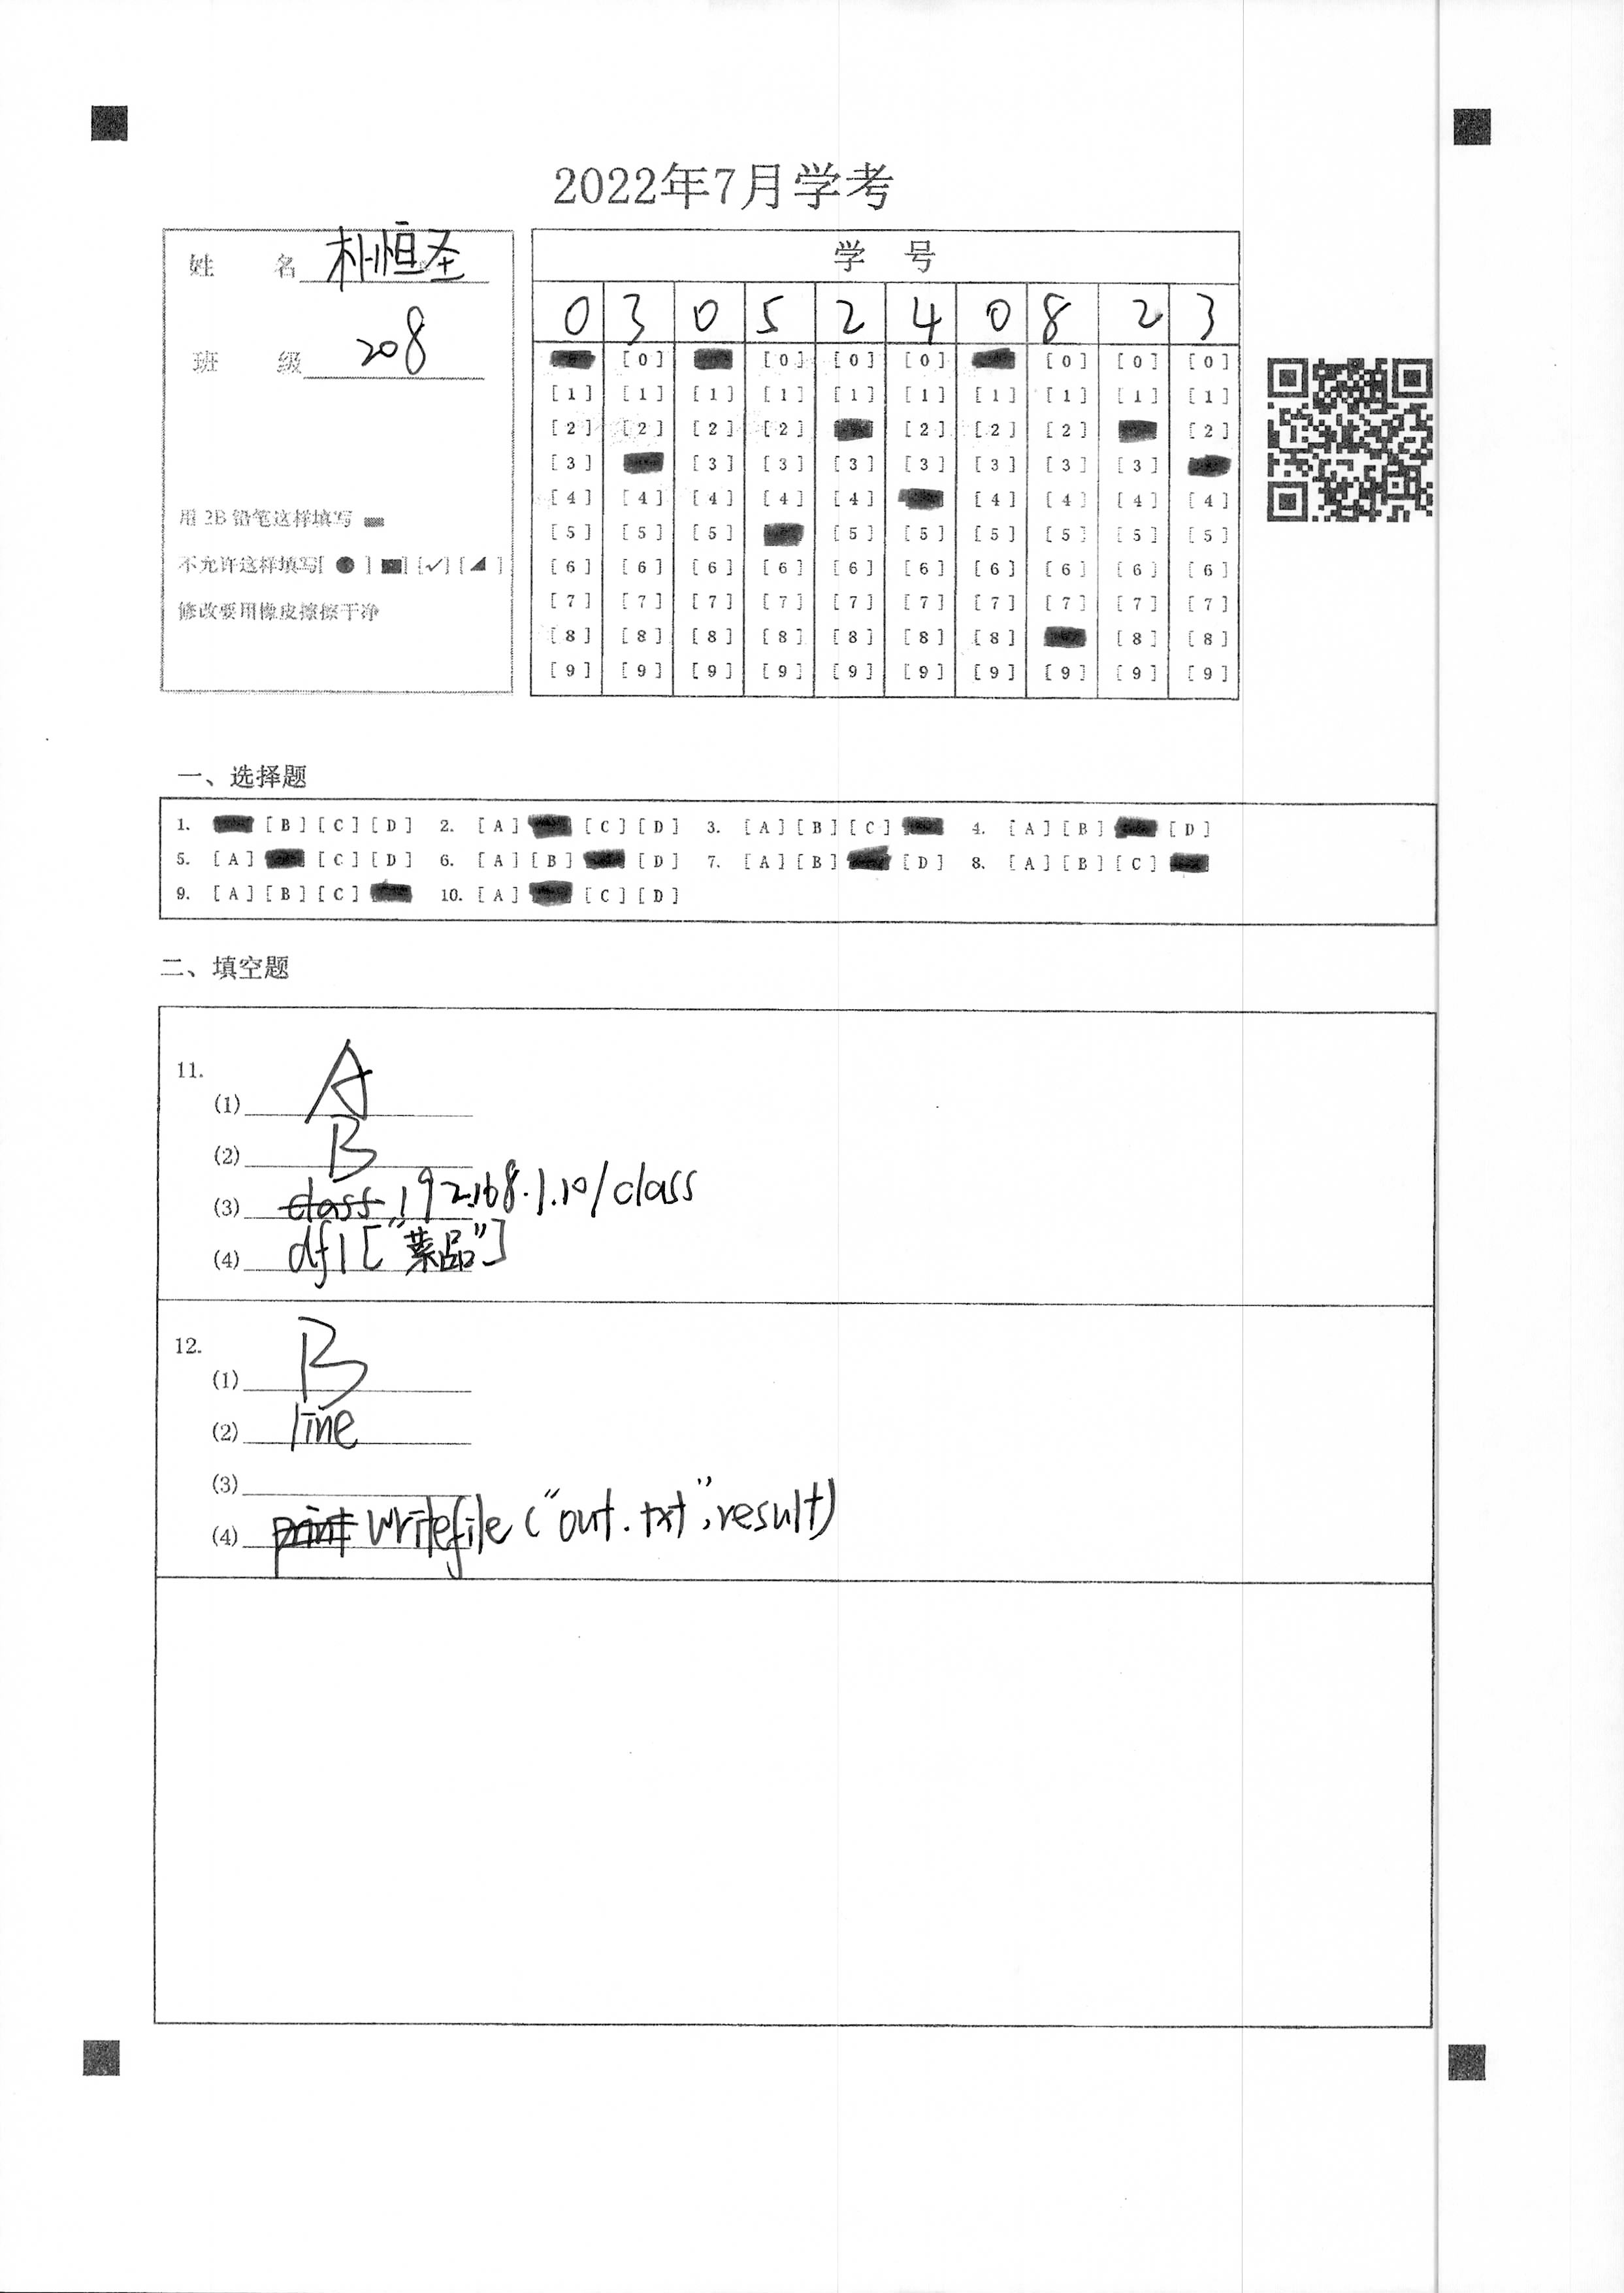 2022年7月学考
姓 名 朴恒圣
班 级 208
用 2B 铅笔这样填写
不允许这样填写[ ● ] [■] [✓] [◢ ]
修改要用橡皮擦擦干净
学 号
0 3 0 5 2 4 0 8 2 3
[0] [0] [0] [0] [0] [0] [0]
[1] [1] [1] [1] [1] [1] [1] [1] [1] [1]
[2] [2] [2] [2] [2] [2] [2] [2]
[3] [3] [3] [3] [3] [3] [3] [3]
[4] [4] [4] [4] [4] [4] [4] [4] [4]
[5] [5] [5] [5] [5] [5] [5] [5] [5]
[6] [6] [6] [6] [6] [6] [6] [6] [6] [6]
[7] [7] [7] [7] [7] [7] [7] [7] [7] [7]
[8] [8] [8] [8] [8] [8] [8] [8] [8]
[9] [9] [9] [9] [9] [9] [9] [9] [9] [9]
一、选择题
1. [B] [C] [D] 2. [A] [C] [D] 3. [A] [B] [C] 4. [A] [B] [D]
5. [A] [C] [D] 6. [A] [B] [D] 7. [A] [B] [D] 8. [A] [B] [C]
9. [A] [B] [C] 10. [A] [C] [D]
二、填空题
11.
(1) A
(2) B
(3) class 192.168.1.10/class
(4) df1["药品"]
12.
(1) B
(2) line
(3)
(4) print writefile("out.txt",result)